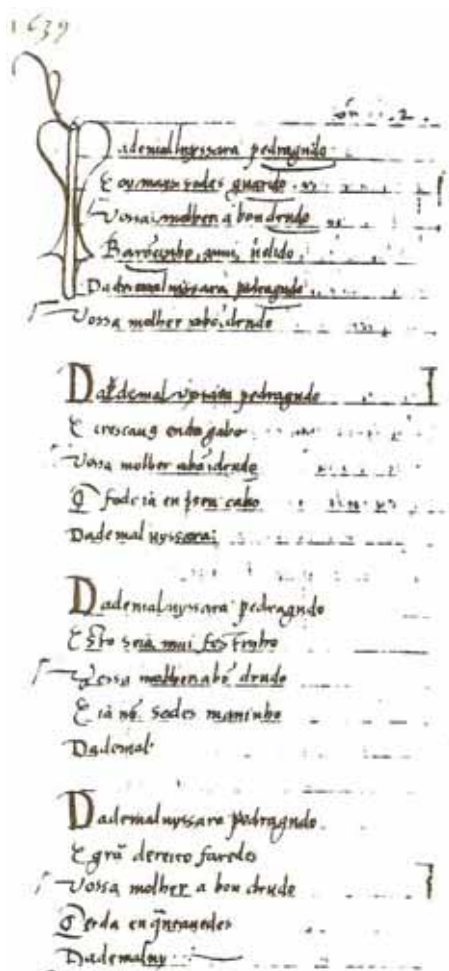 1639
Dademal nyssara pedragudo
E oy mays sodes guardo
Vossa molher a bon drudo
Baro, muj
Dademal nyssara pedragudo
Vossa molher abo drudo
Dademal pedragudo
E crescauꝯ endo gabo
Vossa molher abo drudo
Q̄ fode ia en seu cabo
Dademal nyssara
Dademal nyssara pedragudo
Esto seia mui festinho
Vossa molher abo drudo
E ia nō sodes maninho
Dademal
Dademal nyssara pedragudo
E grā dereito faredes
Vossa molher a bon drudo
Dademal ny